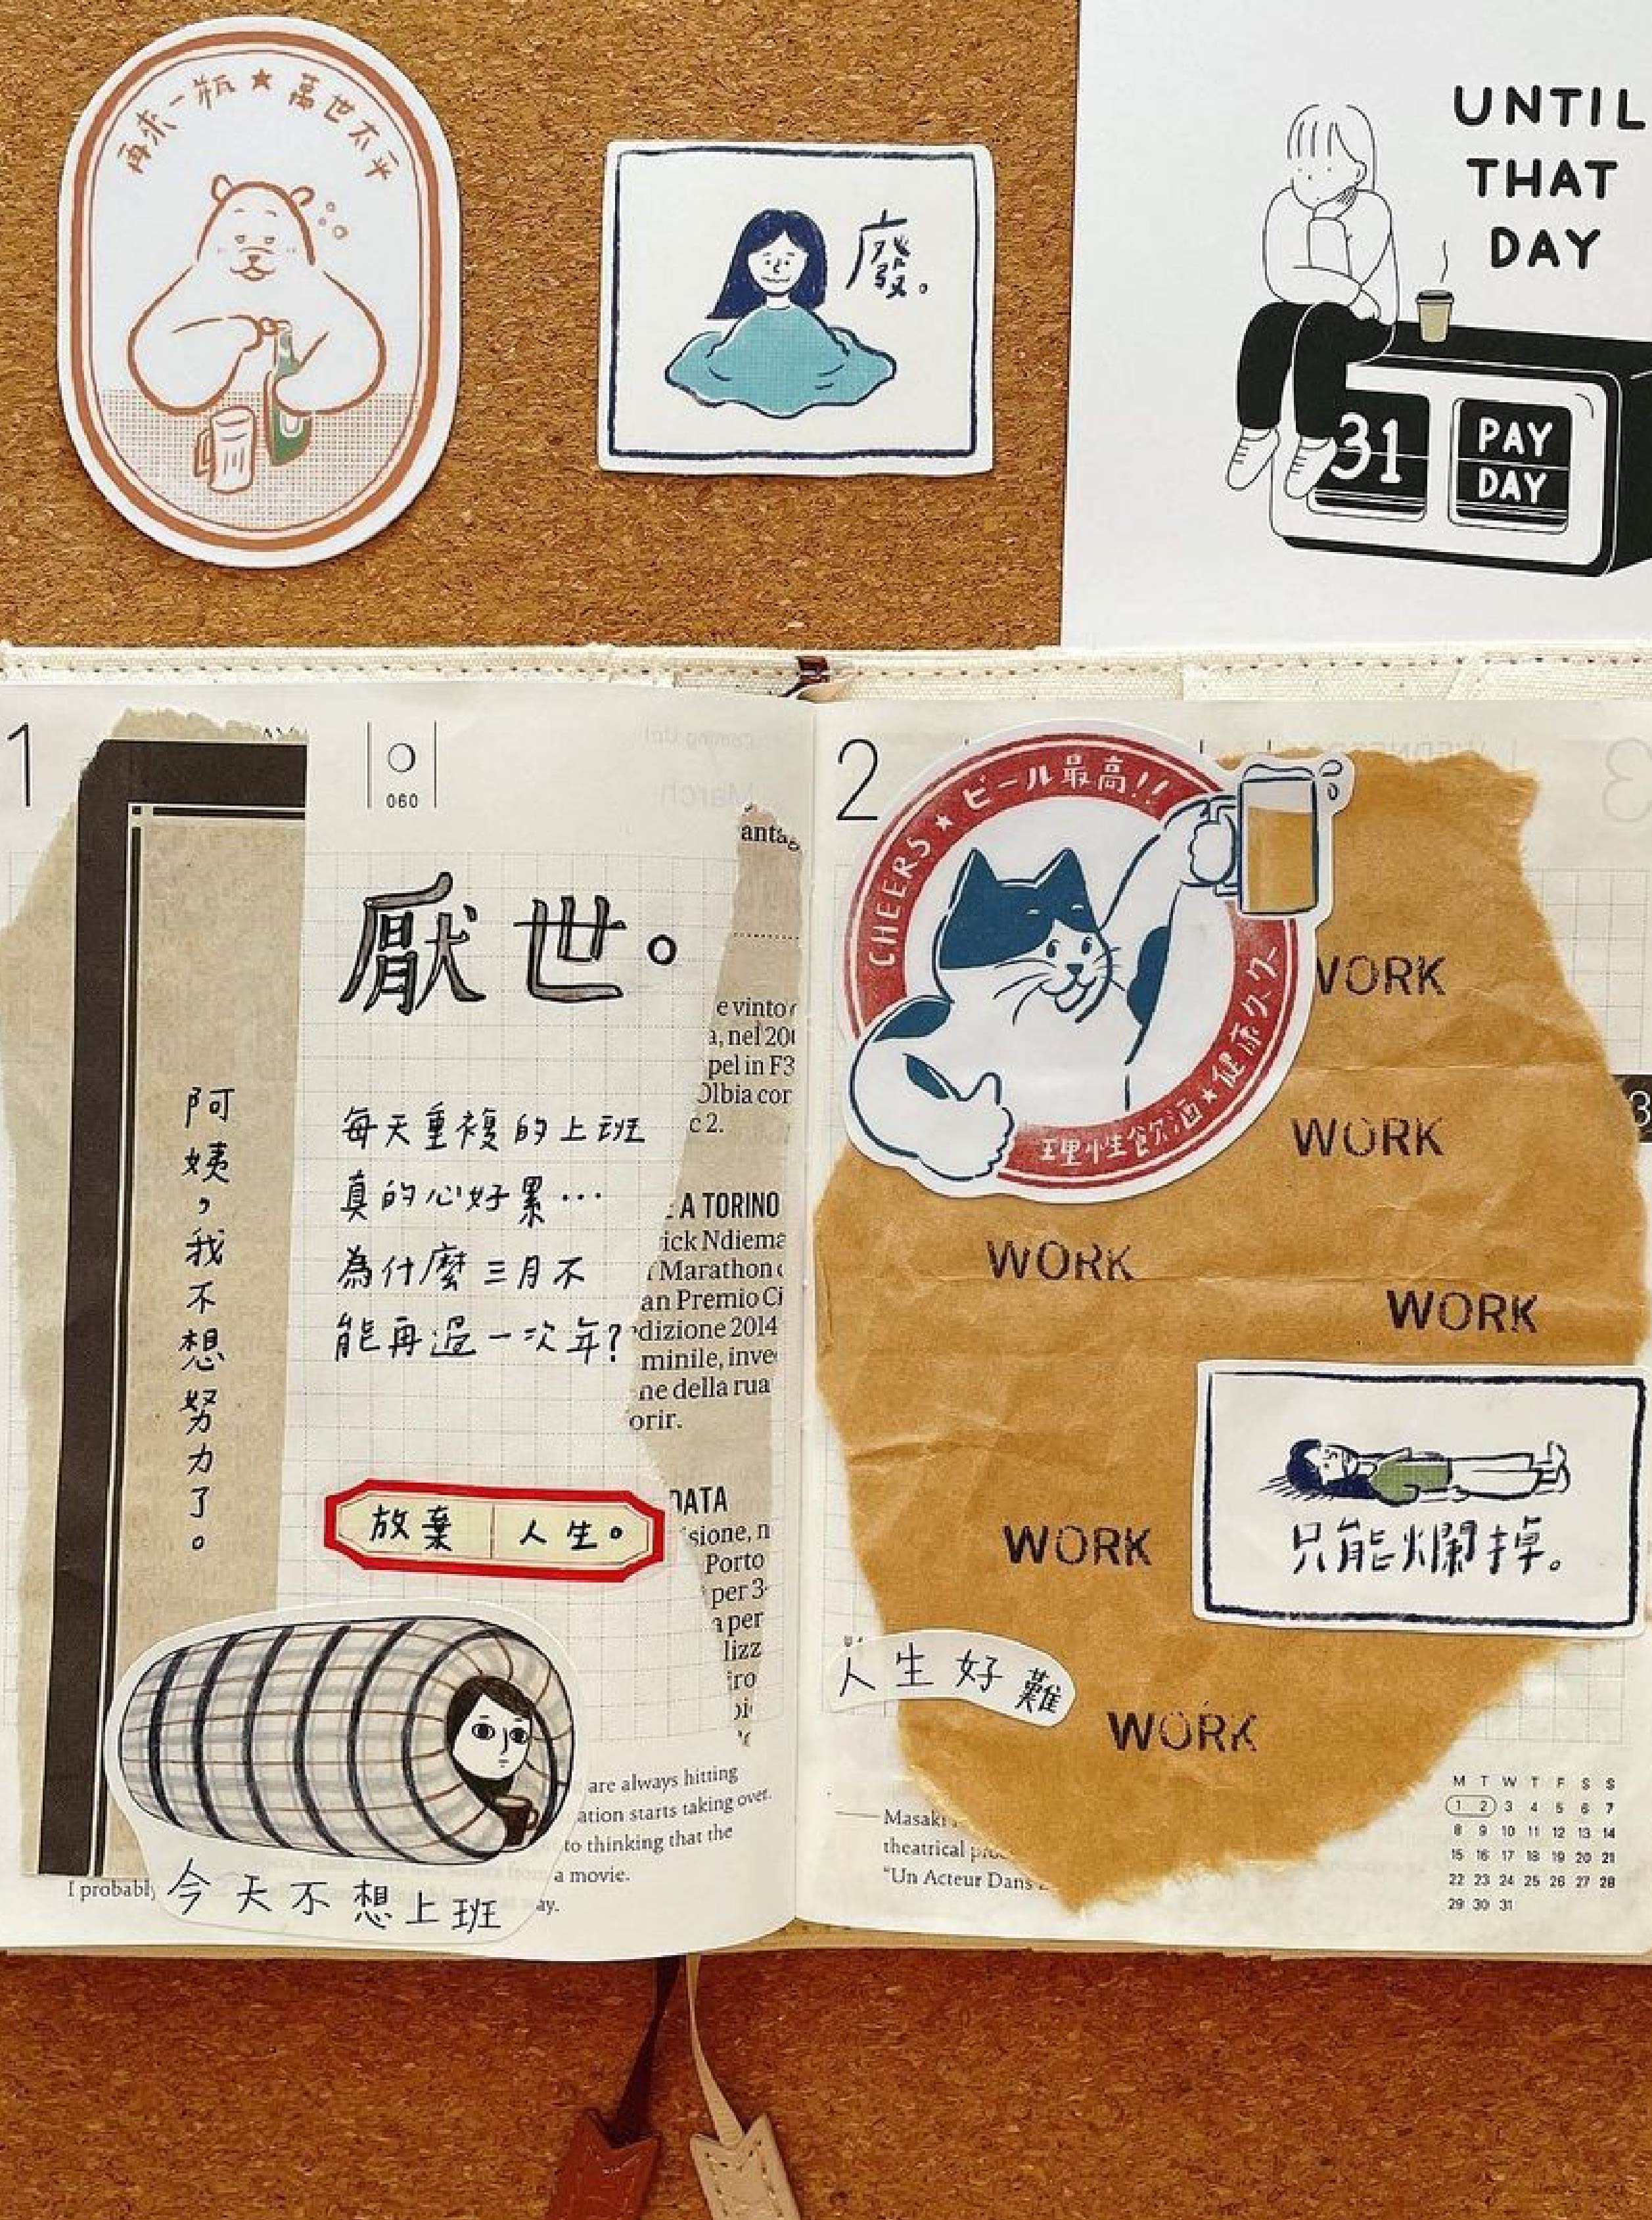 再來一瓶★萬世太平
廢。
UNTIL
THAT
DAY
31
PAY
DAY
1
060
厭世。
阿姨，我不想努力了。
每天重複的上班
真的心好累…
為什麼三月不
能再過一次年?
放棄 人生。
今天不想上班
e vinto
, nel 200
pel in F3
Olbia cor
c 2.
A TORINO
ick Ndiema
Marathon
an Premio Ci
dizione 2014
minile, inve
ne della rua
orir.
DATA
sione, n
Porto
per 3
a per
lizz
iro
are always hitting
ation starts taking over.
to thinking that the
a movie.
I probably
ay.
2
CHEERS★ビール最高!!
理性飲酒★健康久久
WORK
WORK
WORK
WORK
WORK
WORK
只能爛掉。
人生好難
Masaki
theatrical
"Un Acteur Dans
M T W T F S S
1 2 3 4 5 6 7
8 9 10 11 12 13 14
15 16 17 18 19 20 21
22 23 24 25 26 27 28
29 30 31
3